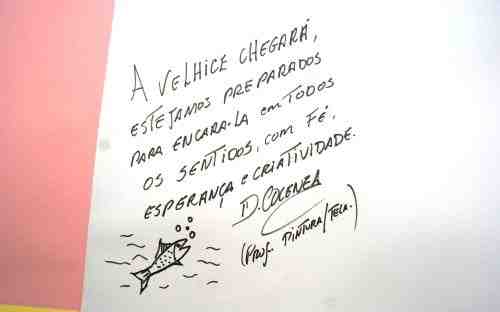 A VELHICE CHEGARÁ,
ESTEJAMOS PREPARADOS
PARA ENCARÁ-LA EM TODOS
OS SENTIDOS, COM FÉ,
ESPERANÇA E CRIATIVIDADE.
D.
(PROF. PINTURA/TELA.)